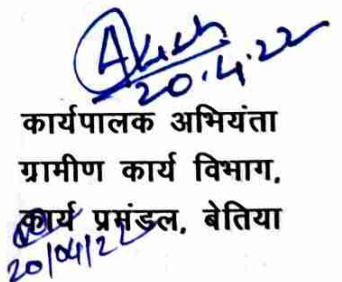 20.4.22
कार्यपालक अभियंता
ग्रामीण कार्य विभाग,
कार्य प्रमंडल, बेतिया
20/04/22